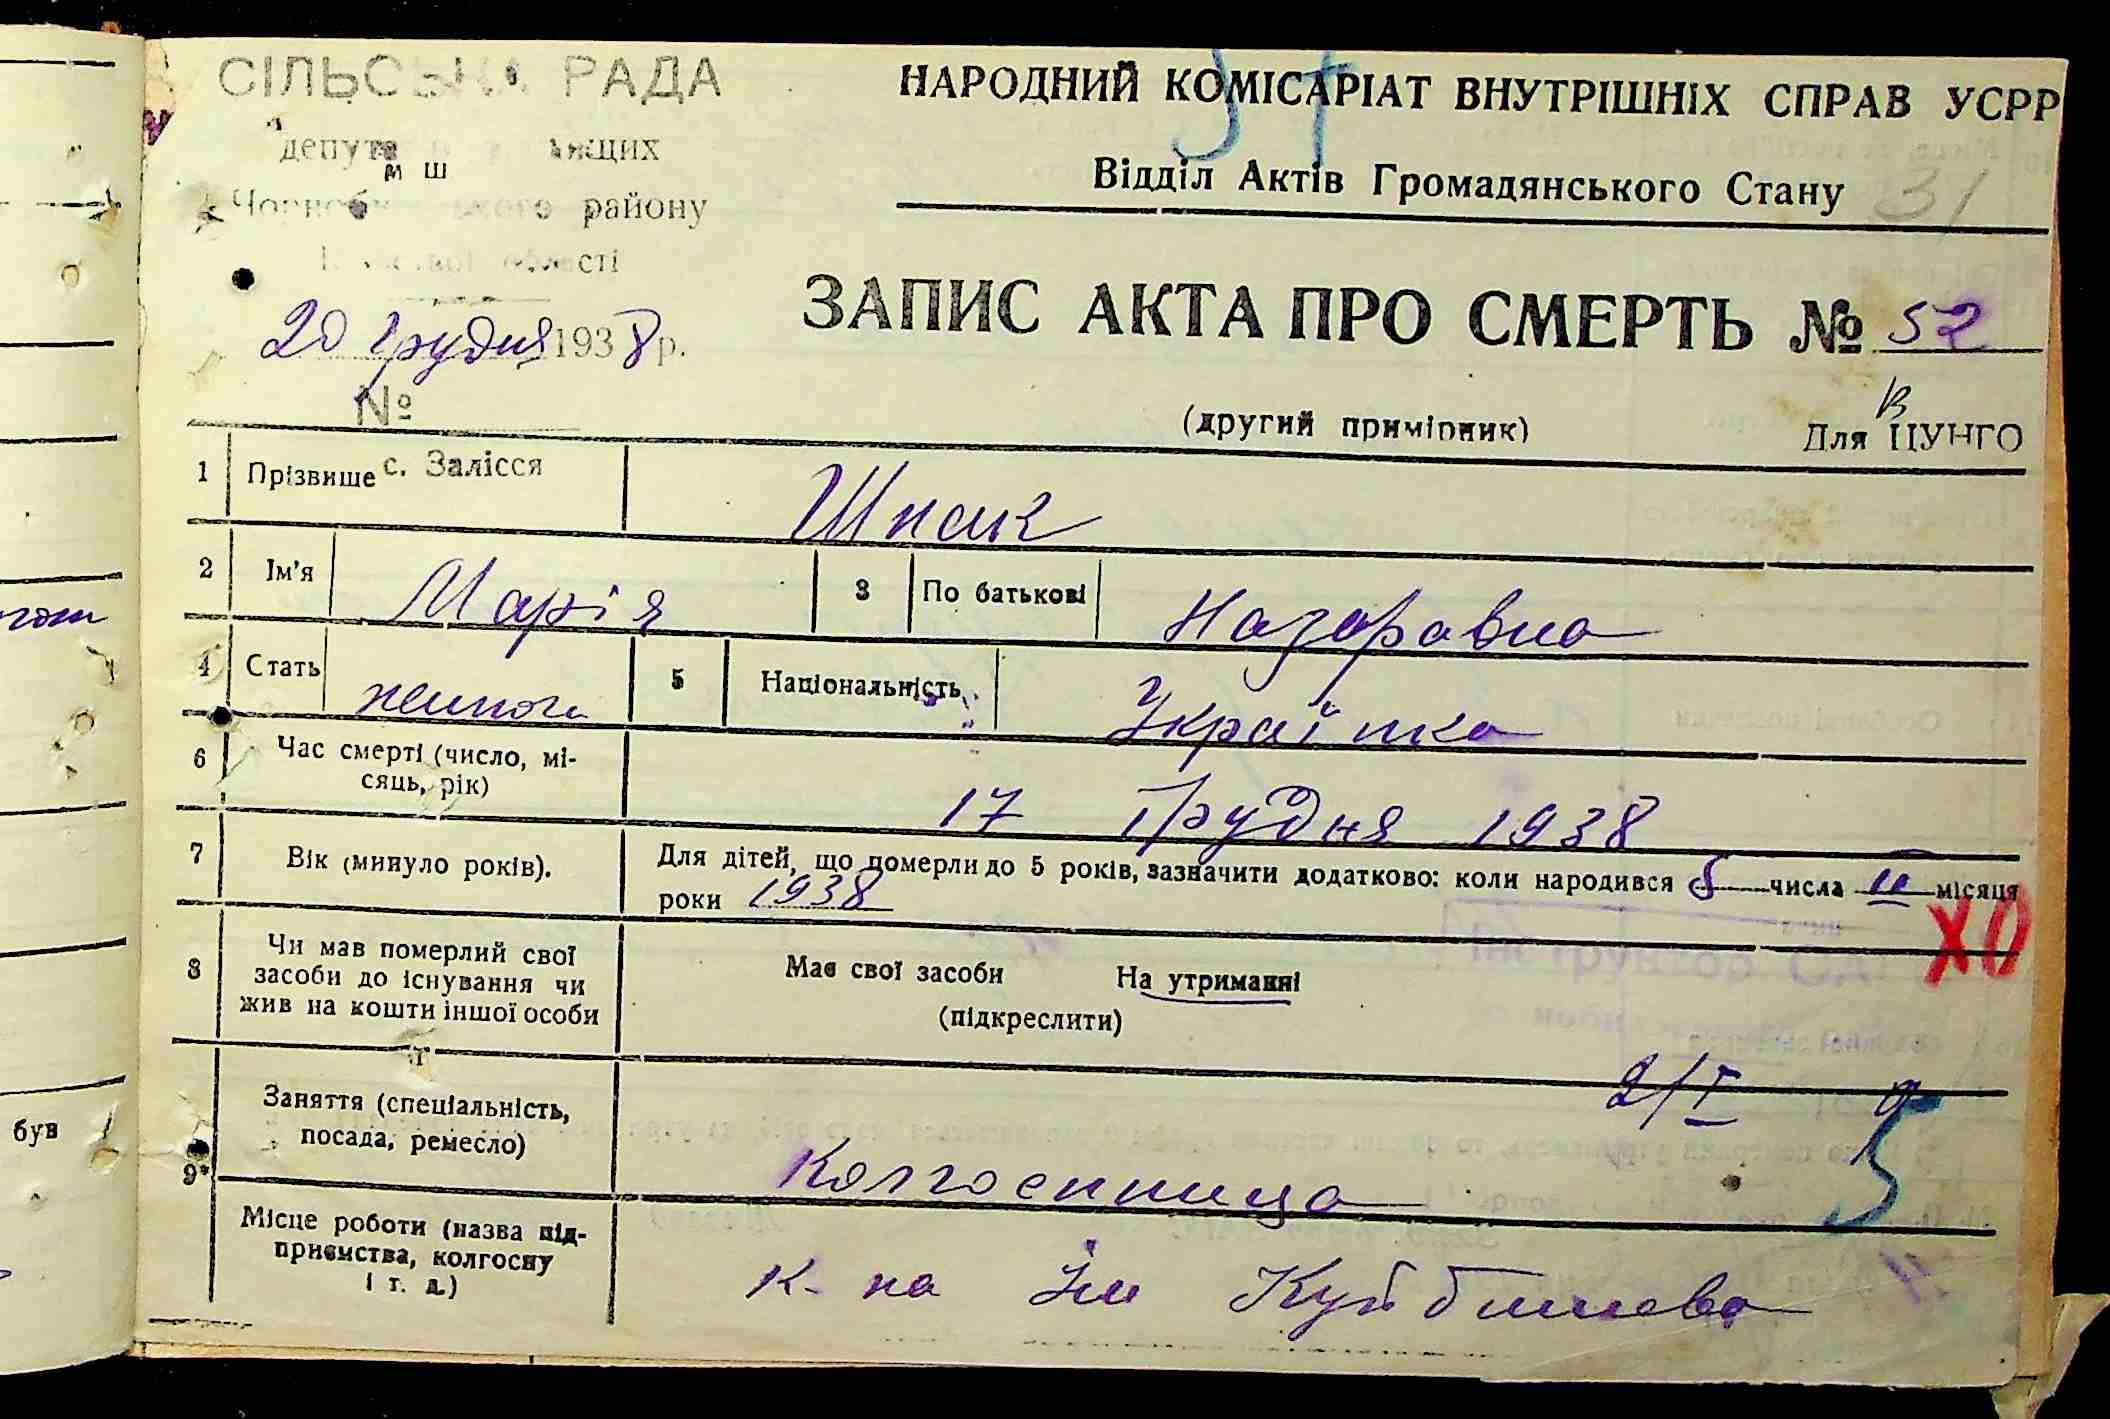 СІЛЬСЬКА РАДА
НАРОДНИЙ КОМІСАРІАТ ВНУТРІШНІХ СПРАВ УСРР
37
Відділ Актів Громадянського Стану
31
району
ЗАПИС АКТА ПРО СМЕРТЬ № 52
20 Грудня 1938 р.
№
(другий примірник)
Для ЦУНГО
1 Прізвище с. Залісся Шпак
2 Ім'я Марія 3 По батькові Назаравна
4 Стать 5 Національність Українка
6 Час смерті (число, мі-
сяць, рік) 17 Грудня 1938
7 Вік (минуло років). Для дітей, що померли до 5 років, зазначити додатково: коли народився 5 числа II місяця
роки 1938
ХО
8 Чи мав померлий свої
засоби до існування чи
жив на кошти іншої особи
Має свої засоби На утриманні
(підкреслити)
2/I
9* Заняття (спеціальність,
посада, ремесло) Колгоспница
5
Місце роботи (назва під-
приємства, колгоспу
і т. д.) К- па Ім Куйбишева
був